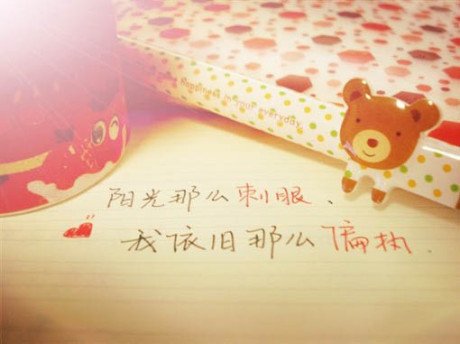 Happiness in your everyday.
阳光那么刺眼、
我依旧那么偏执.